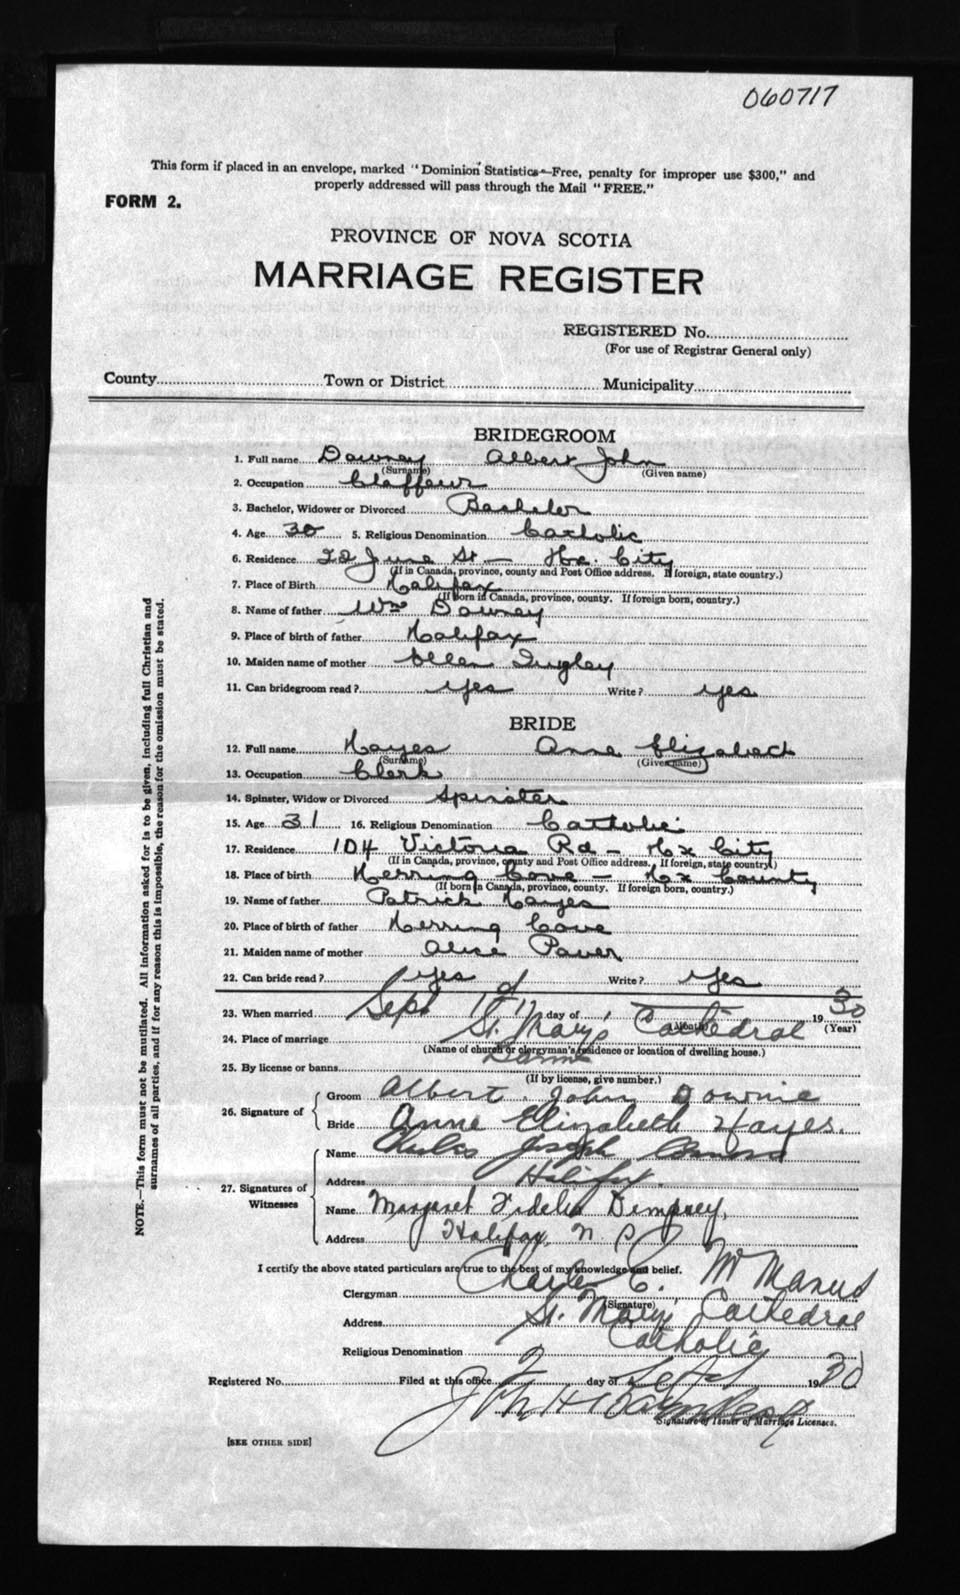 060717
This form if placed in an envelope, marked "Dominion Statistics—Free, penalty for improper use $300," and
properly addressed will pass through the Mail "FREE."
FORM 2.
PROVINCE OF NOVA SCOTIA
MARRIAGE REGISTER
REGISTERED No.
(For use of Registrar General only)
County Town or District Municipality
BRIDEGROOM
1. Full name Downey Albert John
(Surname) (Given name)
2. Occupation Claffeur
3. Bachelor, Widower or Divorced Bachelor
4. Age 30 5. Religious Denomination Catholic
6. Residence 22 June St - Hx. City
(If in Canada, province, county and Post Office address. If foreign, state country.)
7. Place of Birth Halifax
(If born in Canada, province, county. If foreign born, country.)
8. Name of father Wm Downey
9. Place of birth of father Halifax
10. Maiden name of mother Ellen
11. Can bridegroom read? yes Write? yes
BRIDE
12. Full name Hayes Anne Elizabeth
(Surname) (Given name)
13. Occupation Clerk
14. Spinster, Widow or Divorced Spinster
15. Age 31 16. Religious Denomination Catholic
17. Residence 104 Victoria Rd - Hx City
(If in Canada, province, county and Post Office address. If foreign, state country)
18. Place of birth Herring Cove - Hx County
(If born in Canada, province, county. If foreign born, country.)
19. Name of father Patrick Hayes
20. Place of birth of father Herring Cove
21. Maiden name of mother Alice Power
22. Can bride read? yes Write? yes
23. When married Sept day of 1930
(Month) (Year)
24. Place of marriage St. Mary's Cathedral
(Name of church or clergyman's residence or location of dwelling house.)
25. By license or banns Banns
(If by license, give number.)
26. Signature of Groom Albert John Downie
Bride Anne Elizabeth Hayes.
27. Signatures of Witnesses Name Charles Joseph
Address Halifax.
Name Margaret Fidelis Dempsey,
Address Halifax, N. S.
I certify the above stated particulars are true to the best of my knowledge and belief.
Clergyman Charles C. McManus
(Signature)
Address St. Mary's Cathedral
Religious Denomination Catholic
Registered No. Filed at this office 2 day of Sept 1930
John H
Signature of Issuer of Marriage Licenses.
[SEE OTHER SIDE]
NOTE.—This form must not be mutilated. All information asked for is to be given, including full Christian and
surnames of all parties, and if for any reason this is impossible, the reason for the omission must be stated.